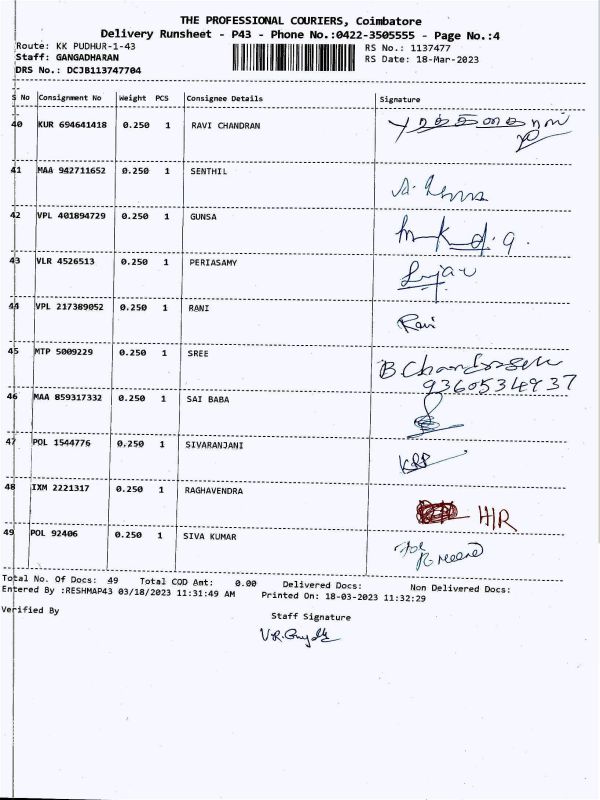 THE PROFESSIONAL COURIERS, Coimbatore
Delivery Runsheet - P43 - Phone No.:0422-3505555 - Page No.:4
Route: KK PUDHUR-1-43
RS No.: 1137477
Staff: GANGADHARAN
RS Date: 18-Mar-2023
DRS No.: DCJB113747704
S No Consignment No Weight PCS Consignee Details Signature
40 KUR 694641418 0.250 1 RAVI CHANDRAN
41 MAA 942711652 0.250 1 SENTHIL
42 VPL 401894729 0.250 1 GUNSA
43 VLR 4526513 0.250 1 PERIASAMY
44 VPL 217389052 0.250 1 RANI Rani
45 MTP 5009229 0.250 1 SREE B Chandrasek
9360534937
46 MAA 859317332 0.250 1 SAI BABA
47 POL 1544776 0.250 1 SIVARANJANI
48 IXM 2221317 0.250 1 RAGHAVENDRA HR
49 POL 92406 0.250 1 SIVA KUMAR
Total No. Of Docs: 49 Total COD Amt: 0.00 Delivered Docs: Non Delivered Docs:
Entered By :RESHMAP43 03/18/2023 11:31:49 AM Printed On: 18-03-2023 11:32:29
Verified By
Staff Signature